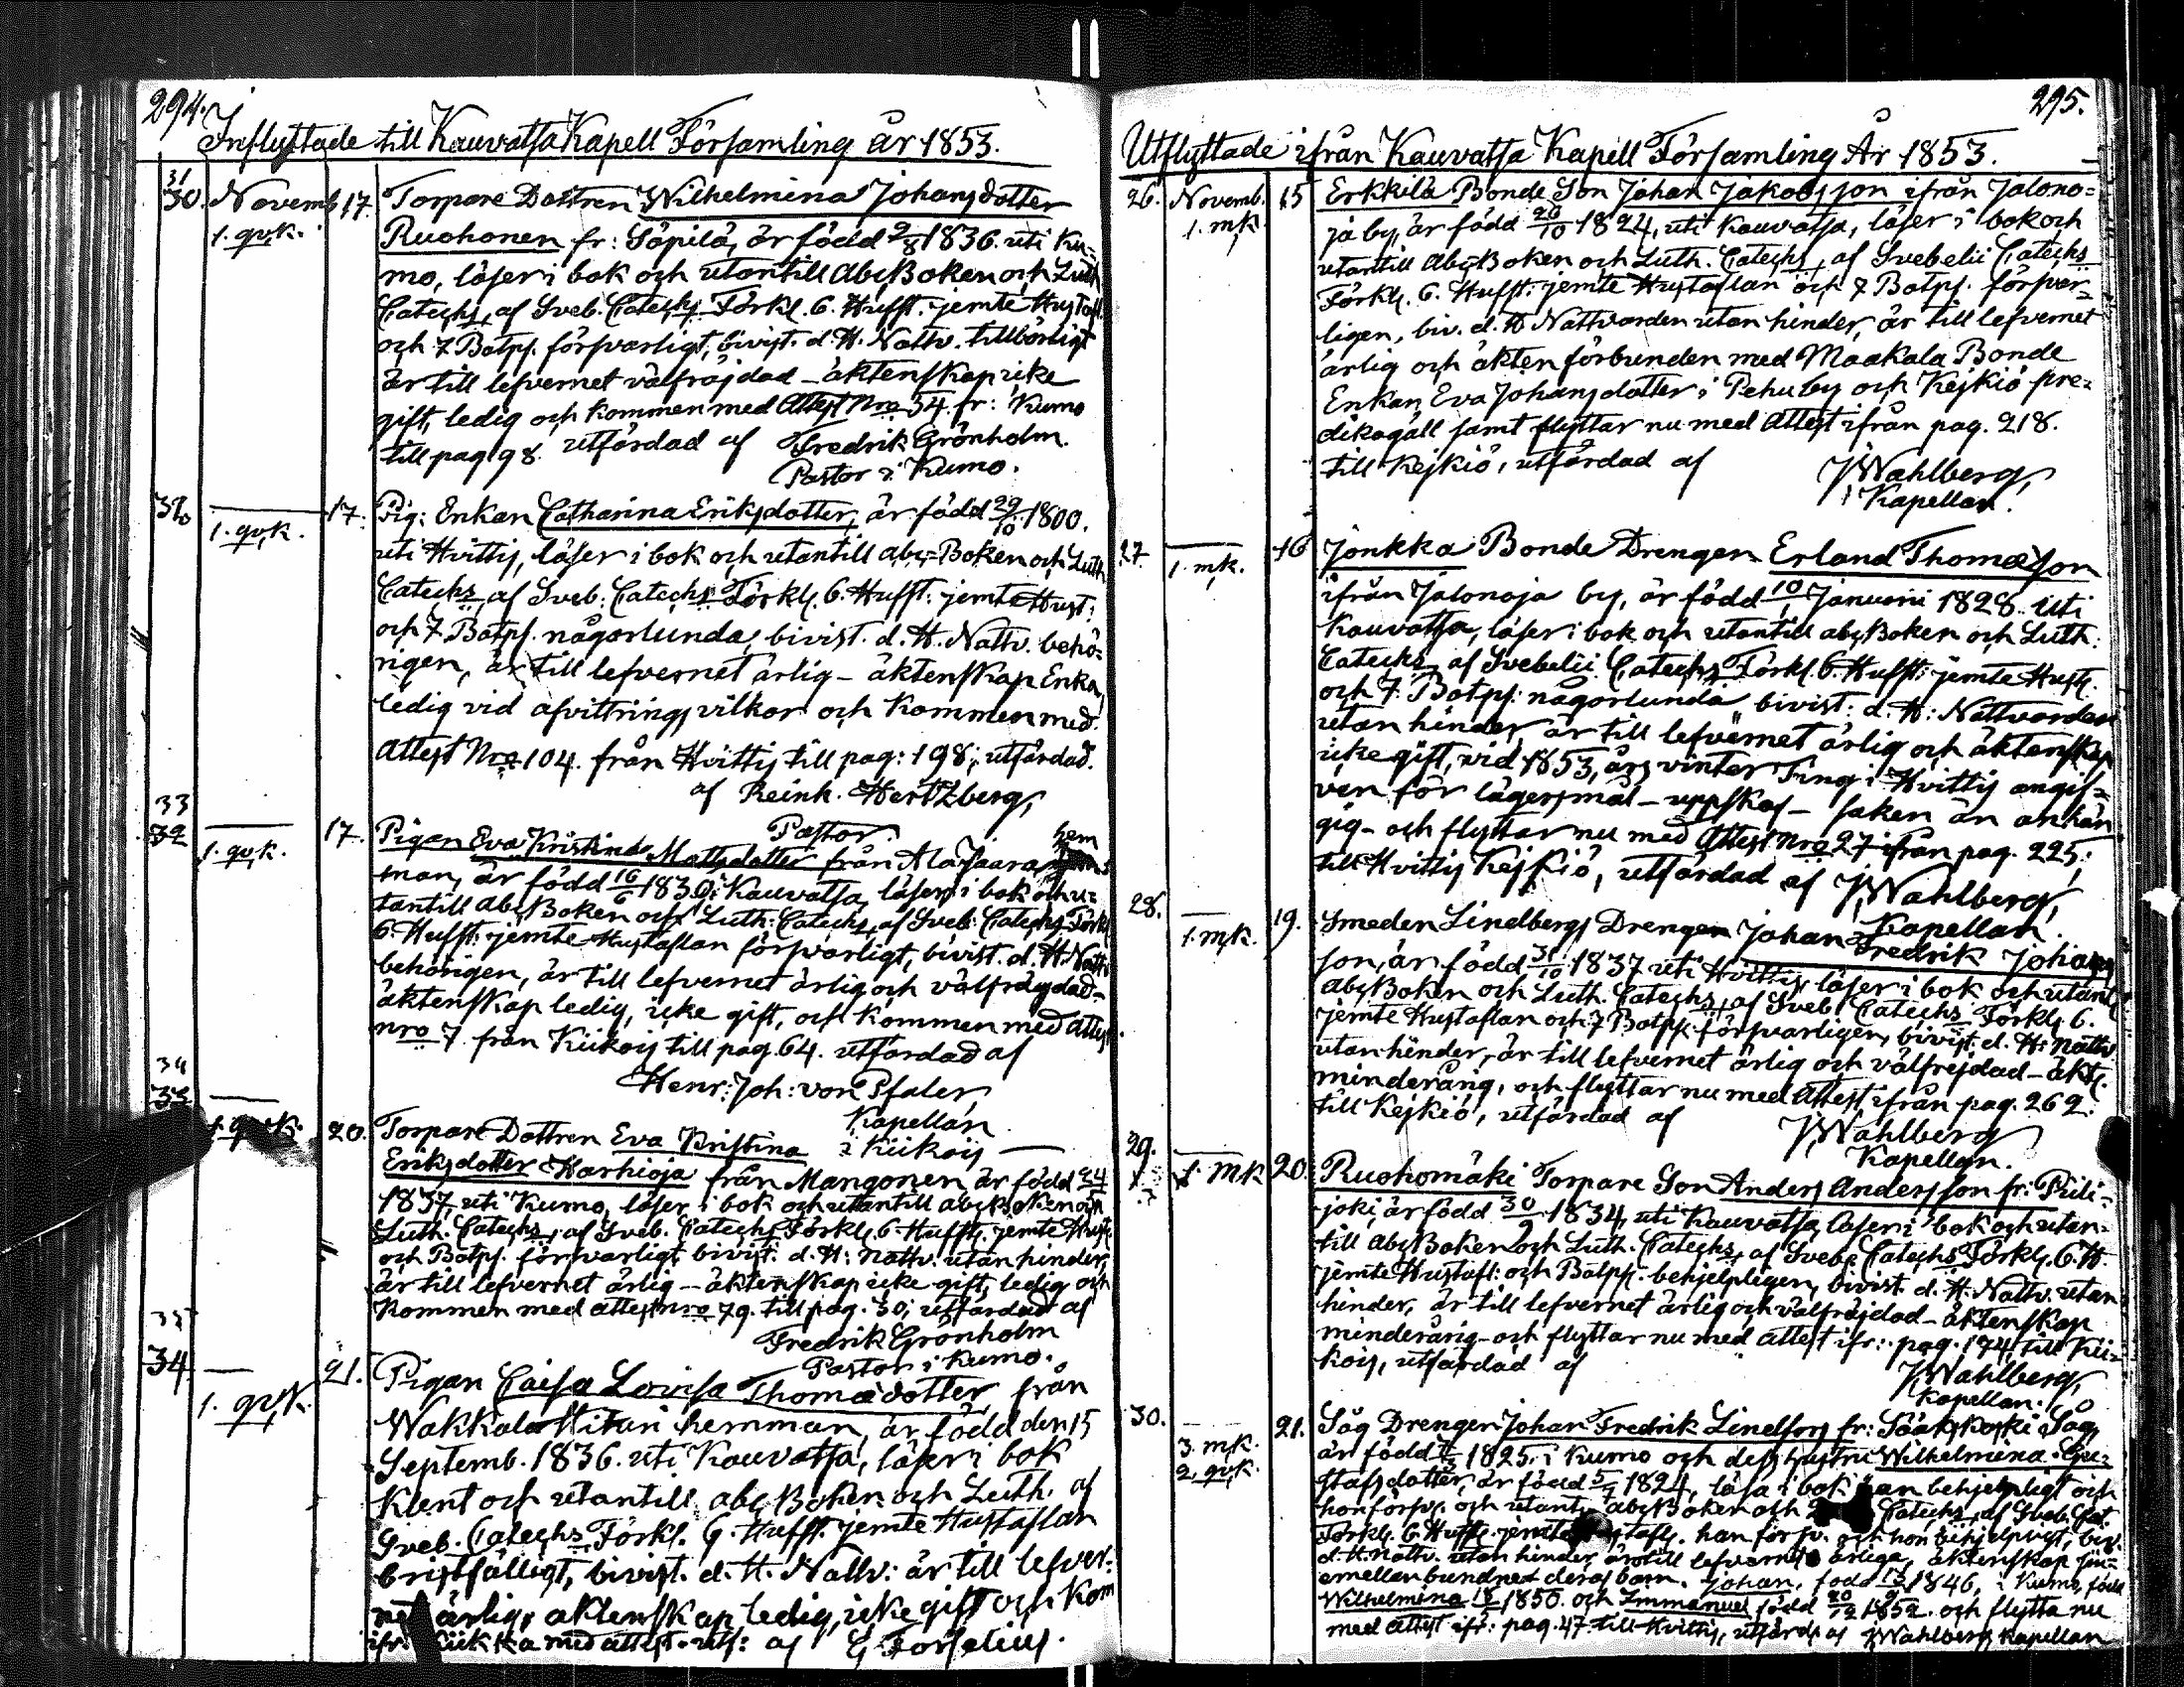 294.
Inflyttade till Kauvatsa Kapell Församling år 1853.
31
30. Novemb. 17. Torpare Dottren Wilhelmina Johansdotter
1. qvk. Ruohonen fr: Söpilä, är född 9/8 1836. uti Ku-
mo, läser i bok och utantill Abc Boken och Luth
Catechs, af Sveb. Catechs Förkl. 6. Hufst. jemte Hustafl.
och 7 Botps. försvarligt, bivist. d. H. Nattv. tillbörligt
är till lefvernet välfräjdad – äktenskap icke
gift, ledig och kommen med Attest Nro 54. fr: Kumo
till pag. 98. utfärdad af Fredrik Grönholm.
Pastor i Kumo.
17. Pig: Enkan Catharina Eriksdotter, är född 29/10 1800.
1. qvk. uti Hvittis, läser i bok och utantill abc-Boken och Luth
Catechs, af Sveb: Catechs Förkls. 6. Hufst: jemte Hust:
och 7 Botps. någorlunda, bivist. d. H. Nattv. behö-
rigen, är till lefvernet ärlig – äktenskap Enka,
ledig vid afvittrings vilkor och kommen med
Attest Nro 104. från Hvittis till pag: 198; utfärdad.
af Reink. Hertzberg,
Pastor.
33
32 1. qvk. 17. Pigan Eva Kristina Mattsdotter från Ala Jaara hem
man, är född 16/6 1830 i Kauvatsa, läser i bok och u-
tantill abc Boken och Luth: Catechs, af Sveb: Catechs Förkl
6. Hufst: jemte Hustaflan försvarligt, bivist. d. H. Nattv
behörigen, är till lefvernet ärlig och välfräjdad –
äktenskap ledig, icke gift, och kommen med Attest
nro 7. från Kiikois till pag. 64. utfärdad af
Henr: Joh: von Pfaler,
Kapellan
i Kiikois
34
33
1. qvk. 20. Torpare Dottren Eva Kristina
Eriksdotter Karhioja från Mangonen är född
1837, uti Kumo, läser i bok och utantill abc Boken och
Luth. Catechs, af Sveb. Catechs Förkls. 6. Hufst. jemte Hust.
och Botps. försvarligt bivist: d. H: Nattv. utan hinder,
är till lefvernet ärlig – äktenskap icke gift, ledig och
kommen med attest nro 79. till pag. 30; utfärdad af
Fredrik Grönholm
Pastor i Kumo.
34 21. Pigan Caisa Lovisa Thomædotter från
1. qvk. Wakkala Hitari hemman, är född den 15
Septemb. 1836. uti Kauvatsa, läser i bok
klent och utantill abc Boken och Luth. af
Sveb. Catechs Förkl. 6. Hufst. jemte Hustaflan
bristfälligt, bivist. d. H. Nattv: är till lefver-
net ärlig, äktenskap ledig, icke gift och kom
med attest. utf: af G Forselius.
295.
Utflyttade ifrån Kauvatsa Kapell Församling År 1853.
26. Novemb. 15 Erkkilä Bonde Son Johan Jakobsson ifrån Jalono-
1. mk. ja by, är född 26/10 1824, uti Kauvatsa, läser i bok och
utantill Abc Boken och Luth. Catechs, af Svebelii Catechs
Förkls. 6. Hufst: jemte Hustaflan och 7 Botps. försvar-
ligen, biv. d. H Nattvarden utan hinder, är till lefvernet
ärlig och äkten förbunden med Maakala Bonde
Enkan Eva Johansdotter i Pehu by och Kejkiö pre-
dikogäll samt flyttar nu med Attest ifrån pag. 218.
till Kejkiö, utfärdad af JWahlberg,
Kapellan.
27. 1. mk. 16 Jonkka Bonde Drengen Erland Thomæsson
ifrån Jalonoja by, är född 10/1 Januari 1828. uti
Kauvatsa, läser i bok och utantill abc Boken och Luth.
Catechs, af Svebelii Catechs Förkl. 6. Hufst: jemte Hust.
och 7. Botps: någorlunda bivist: d. H: Nattvarden
utan hinder, är till lefvernet ärlig och äktenskap
icke gift, vid 1853, års vinter Ting i Hvittis angif-
ven för lägersmål – uppskof – saken än anhän
gig – och flyttar nu med Attest nro 27 ifrån pag. 225;
till Hvittis Kejkiö, utfärdad af JWahlberg,
Kapellan.
28. 1. mk. 19. Smeden Lindbergs Drengen Johan Fredrik Johans
son, är född 31/10 1837 uti Hvittis, läser i bok och utant.
abc Boken och Luth. Catechs, af Sveb. Catechs Förkls. 6.
jemte Hustaflan och 7 Botps. försvarligen, bivist d. H: Nattv
utan hinder, är till lefvernet ärlig och välfrejdad – äkts.
minderårig, och flyttar nu med Attest ifrån pag. 262.
till Kejkiö, utfärdad af JWahlberg
Kapellan.
29. 1. mk 20. Ruohomäki Torpare Son Anders Andersson fr: Piili-
joki, är född 30/9 1834, uti Kauvatsa, läser i bok och utan-
till abc Boken och Luth. Catechs, af Sveb. Catechs Förkls. 6. H.
jemte Hustafl: och Botps. behjelpligen, bivist. d. H. Nattv. utan
hinder, är till lefvernet ärlig och välfräjdad – äktenskap
minderårig – och flyttar nu med attest ifr: pag. 174 till Kii-
kois, utfärdad af JWahlberg,
Kapellan.
30. 21. Såg Drengen Johan Fredrik Lindfors fr: Sääkskoski Såg,
3. mk. är född 1825. i Kumo och dess hustru Wilhelmina Gu-
2. qvk. stafsdotter, är född 1824, läsa i bok han behjelpligt och
hon försv. och utant. abc Boken och Catechs, af Sveb. Cat.
Förkls. 6. Hufst. jemte han försv. och hon behjelpligt, biv.
d. H. nattv. utan hinder, äro till lefvernet ärliga, äktenskap sin-
emellan bundne deras barn. Johan, född 1846, i Kumo, född
Wilhelmina 1850. och Immanuel född 20/12 1852. och flytta nu
med attest ifr: pag. 47 till Hvittis, utfärd: af JWahlberg Kapellan